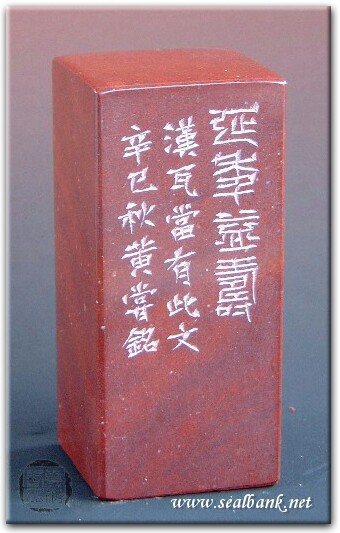 延年益壽
漢瓦當有此文
辛巳秋黃嘗銘
www.sealbank.net